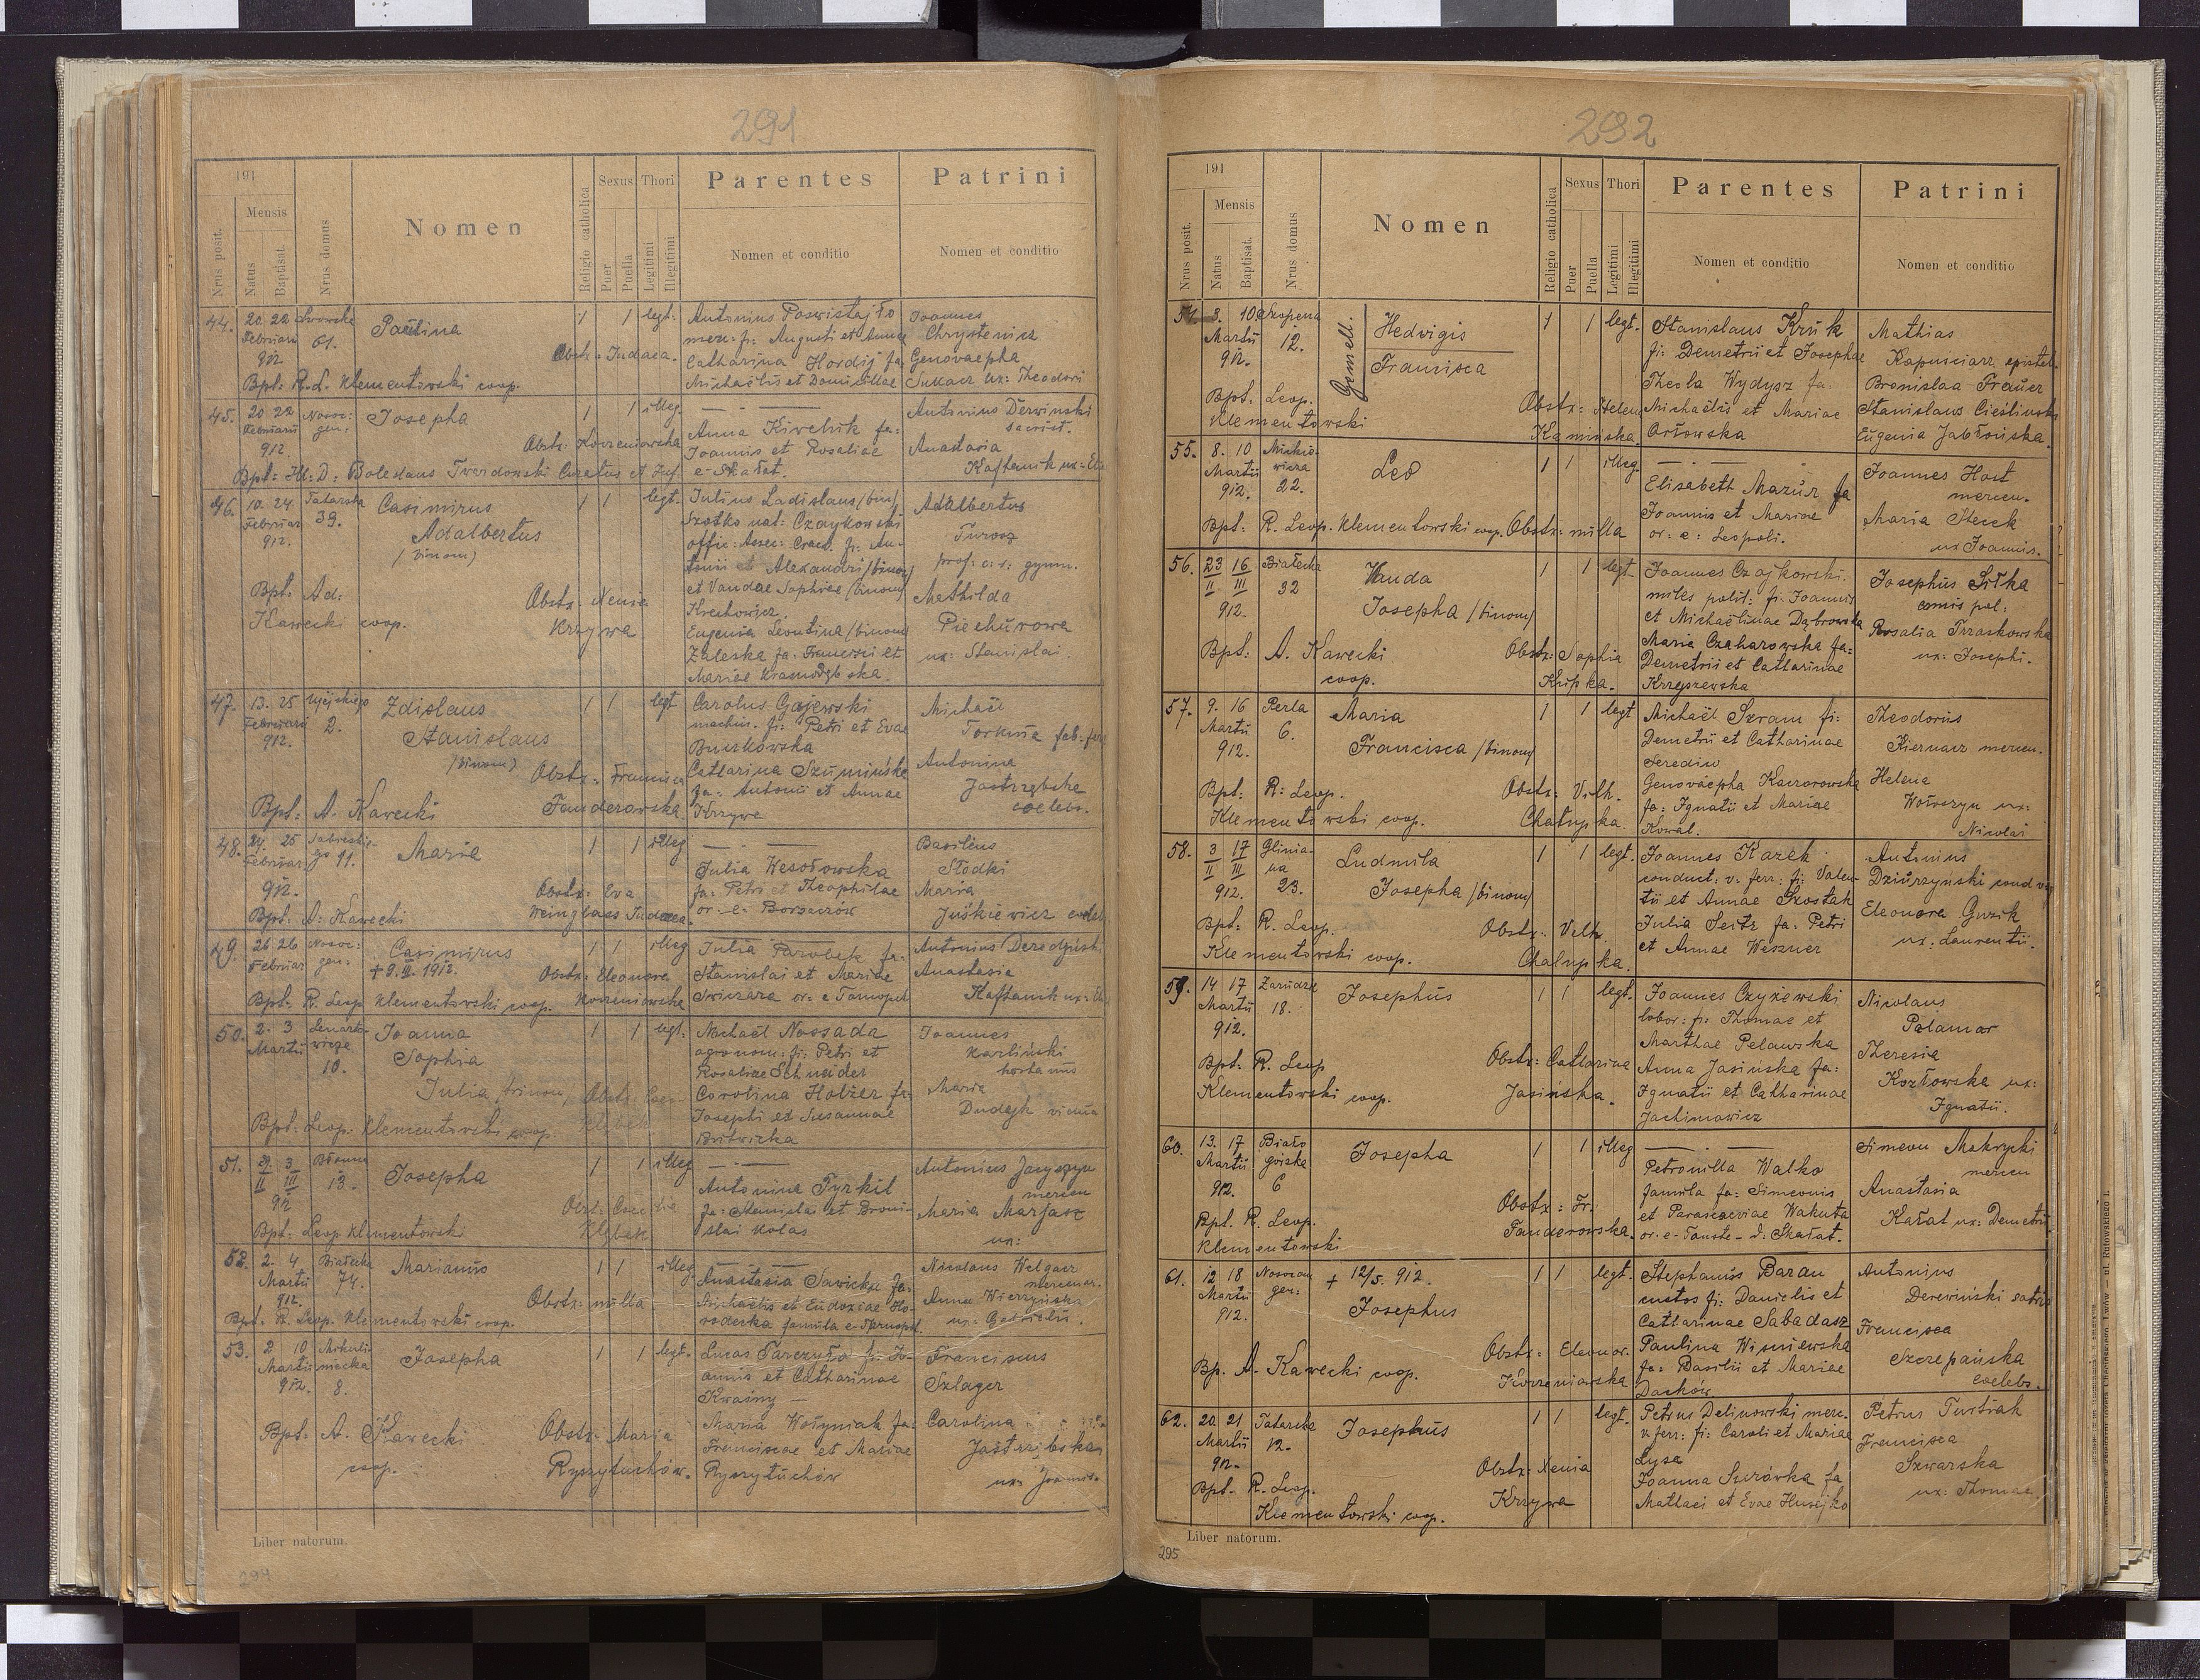 291
191
Nrus posit.
Mensis
Natus
Baptisat.
Nrus domus
Nomen
Religio catholica
Sexus
Puer
Puella
Thori
Legitimi
Illegitimi
Parentes
Nomen et conditio
Patrini
Nomen et conditio
44. 20. 22 Lwowska
Februarii 61.
912.
Paulina
1 1 legt.
Obstr. Judaea.
Bpt: R. L. Klementowski coop.
Antonius Poswistajło
merc. fi: Augusti et Annae
Catharina Hordij fa
Michaëlis et Domicillae
Joannes
Chrystenicz
Genovaepha
Sukacz ux: Theodori
45. 20 22 Nosoc:
Februarii gen:
912.
Josepha
1 1 illeg.
Obstr: Korzeniowska
Bpt: Boleslaus Twardowski Curatus et
Anna Kiwelnik fa:
Joannis et Rosaliae
e Skałat.
Antonius Derwinski
sacrist.
Anastasia
Kaftanik ux:
46. 10. 24 Tatarska
Februar 39.
912.
Casimirus
Adalbertus
(binom)
1 1 legt.
Bpt. Ad:
Kawecki coop.
Obstr: Xenia
Krzywa
Julius Ladislaus (bin)
Szotko nat: Czaykowski
offic: Assec: Crac. fi: An-
tonii et Alexandri (binom)
et Vandae Sophiae (binom)
Hrechowicz.
Eugenia Leontina (binom)
Zaleska fa. Francisci et
Mariae
Adalbertus
Turosz
prof: c. r: gymn.
Mathilda
Piechurowa
ux: Stanislai.
47. 13. 25 Ujejskiego
Februarii 2.
912.
Zdislaus
Stanislaus
(binom)
1 1 legt
Obstr: Francisca
Fanderowska
Bpt: A. Kawecki
Carolus Gajewski
machin. fi: Petri et Evae
Buczkowska
Catharina Szumińska
fa: Antonii et Annae
Krzywe
Michaël
Antonina
Jastrzębska
coelebs.
48. 24. 25 Sobieskie-
Februar go 11.
912.
Maria
1 1 illeg
Obstr: Eva
Weinglass Judaea.
Bpt: A: Kawecki
Julia Wesołowska
fa: Petri et Theophilae
or. e. Borszczów
Basilius
Słodki
Maria
Juśkiewicz coeleb.
49. 26 26 Nosoc:
Februar gen:
Casimirus
+ 9. III. 1912.
1 1 illeg
Obstr: Eleonora
Korzeniowska
Bpt: R. Leop Klementowski coop.
Julia Parobek fa:
Stanislai et Mariae
or: e Tarnopol
Antonius
Anastasia
Kaftanik ux:
50. 2. 3 Lenarto-
Martii wicza
10.
Joanna
Sophia
Julia (trinom)
1 1 legt.
Bpt: Leop. Klementowski coop.
Michaël Nossada
agronom: fi: Petri et
Rosaliae Schneider
Carolina Holzer fa
Josephi et Susannae
Joannes
Karliński
Maria
Dudejk vidua
51. 29. 3
II III 13.
912
Josepha
1 1 illeg
Obst. Caecilia
Bpt: Leop Klementowski
Antonina Tyrkit
fa: et Broni-
slai Kolas
Antonius
mercen
Maria Marjasz
ux:
52. 2. 4 Białecka
Martii 74.
912.
Marianus
1 1 illeg.
Obstr: nulla
Bpt: R. Leop. Klementowski coop.
Anastasia Sawicka fa:
Michaëlis et Eudoxiae Ho-
roderka famula e Tarnopol.
Nicolaus Welgacz
mercenar.
Anna
ux: Gabrielis.
53. 2 10 Mikuli-
Martii niecka
912. 8.
Josepha
1 1 legt.
Bpt. A. Kawecki
coop.
Obstr: Maria
Ryszytuchów.
Lucas fi: Jo-
annis et Catharinae
Kwaśny
Maria Wołyniak fa:
Franciscae et Mariae
Ryszytuchów
Franciscus
Szlager
Carolina
Jastrzębska
ux: Joannis
Liber natorum.
294
292
191
Nrus posit.
Mensis
Natus
Baptisat.
Nrus domus
Nomen
Religio catholica
Sexus
Puer
Puella
Thori
Legitimi
Illegitimi
Parentes
Nomen et conditio
Patrini
Nomen et conditio
54 3. 10 Szopena
Martii 12.
912.
Gemell.
Hedwigis
Francisca
1 1 legt.
Bpt: Leop.
Klementowski
Obstr: Helena
Kamińska.
Stanislaus Kruk
fi: Demetrii et Josephae
Thecla Wydysz fa:
Michaëlis et Mariae
Orłowska
Mathias
Kapuściarz
Bronislaa Frauer
Stanislaus Cieślinski
Eugenia Jabłońska.
55. 8. 10 Mickie-
Martii wicza
912. 22.
Leo
1 1 illeg.
Bpt: R. Leop. Klementowski coop. Obstr: nulla
Elisabeth Mazur fa
Joannis et Mariae
or: e: Leopoli.
Joannes Host
mercen.
Maria Sterck
ux Joannis.
56. 23 16 Białecka
II III 32
912.
Wanda
Josepha (binom)
1 1 legt.
Bpt: A. Kawecki
coop.
Obstr: Sophia
Krupka.
Joannes Czajkowski.
miles polit: fi. Joannis
et Michaëlinae Dąbrowska
Maria Czaharowska fa:
Demetrii et Catharinae
Krzyszewska
Josephus Sitka
Rosalia Trzaskowska
ux: Josephi.
57. 9. 16 Perla
Martii 6.
912.
Maria
Francisca (binom)
1 1 legt
Bpt: R: Leop.
Klementowski coop.
Obstr: Vilh.
Chałupka.
Michaël Szram fi:
Demetrii et Catharinae
Serediw
Genovaepha Kaczorowska
fa: Ignatii et Mariae
Kowal.
Theodorus
Kiernacz mercen.
Helena
ux:
Nicolai
58. 3 17 Glinia-
II III na
912. 23.
Ludmila
Josepha (binom)
1 1 legt.
Bpt: R. Leop.
Klementowski coop.
Obstr: Velh.
Chałupka.
Joannes Kazek
conduct. v. ferr: fi: Valen-
tii et Annae Szostak
Julia Seitz fa: Petri
et Annae Weszner
Antonius
Dziurzyński cond
Eleonora Guzik
ux: Laurentii.
59. 14 17 Zarudzie
Martii 18.
912.
Josephus
1 1 legt.
Bpt: R. Leop
Klementowski coop.
Obstr: Catharina
Jasińska.
Joannes Czyżewski
labor: fi: Thomae et
Marthae Pelawska
Anna Jasińska fa:
Ignatii et Catharinae
Jachimowicz
Nicolaus
Palamar
Theresia
Kozłowska ux:
Ignatii.
60. 13. 17 Biało
Martii górska
912. 6
Josepha
1 1 illeg
Bpt. R. Leop.
Klementowski
Obstr: Fr:
Fanderowska.
Petronilla Walko
famula fa: Simeonis
et Parasceviae Wakuta
or. e. Touste - d: Skałat.
Simeon Mokrycki
mercen
Anastasia
Karat ux: Demetrii.
61. 12 18 Nosocom
Martii gen:
912.
+ 12/5. 912.
Josephus
1 1 legt.
Bp. A. Kawecki coop.
Obstr: Eleonor.
Korzeniowska
Stephanus Baran
custos fi: Danielis et
Catharinae Sabadasz
Paulina Wisniewska
fa: Basilii et Mariae
Daćków
Antonius
Derewiński
Francisca
Szczepańska
coelebs.
62. 20. 21 Tatarska
Martii 12.
912.
Josephus
1 1 legt.
Bpt. R. Leop.
Klementowski coop.
Obstr: Xenia
Krzywa
Petrus Delinowski merc.
v. ferr: fi: Caroli et Mariae
Lysa
Joanna Surówka fa
Mathaei et Evae Husejko
Petrus Turtiak
Francisca
Szwarska
ux: Thomae
Liber natorum.
295